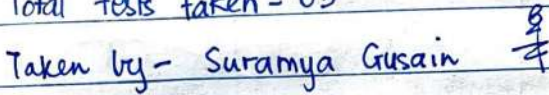 Total Tests taken - 05
Taken by - Suramya Gusain